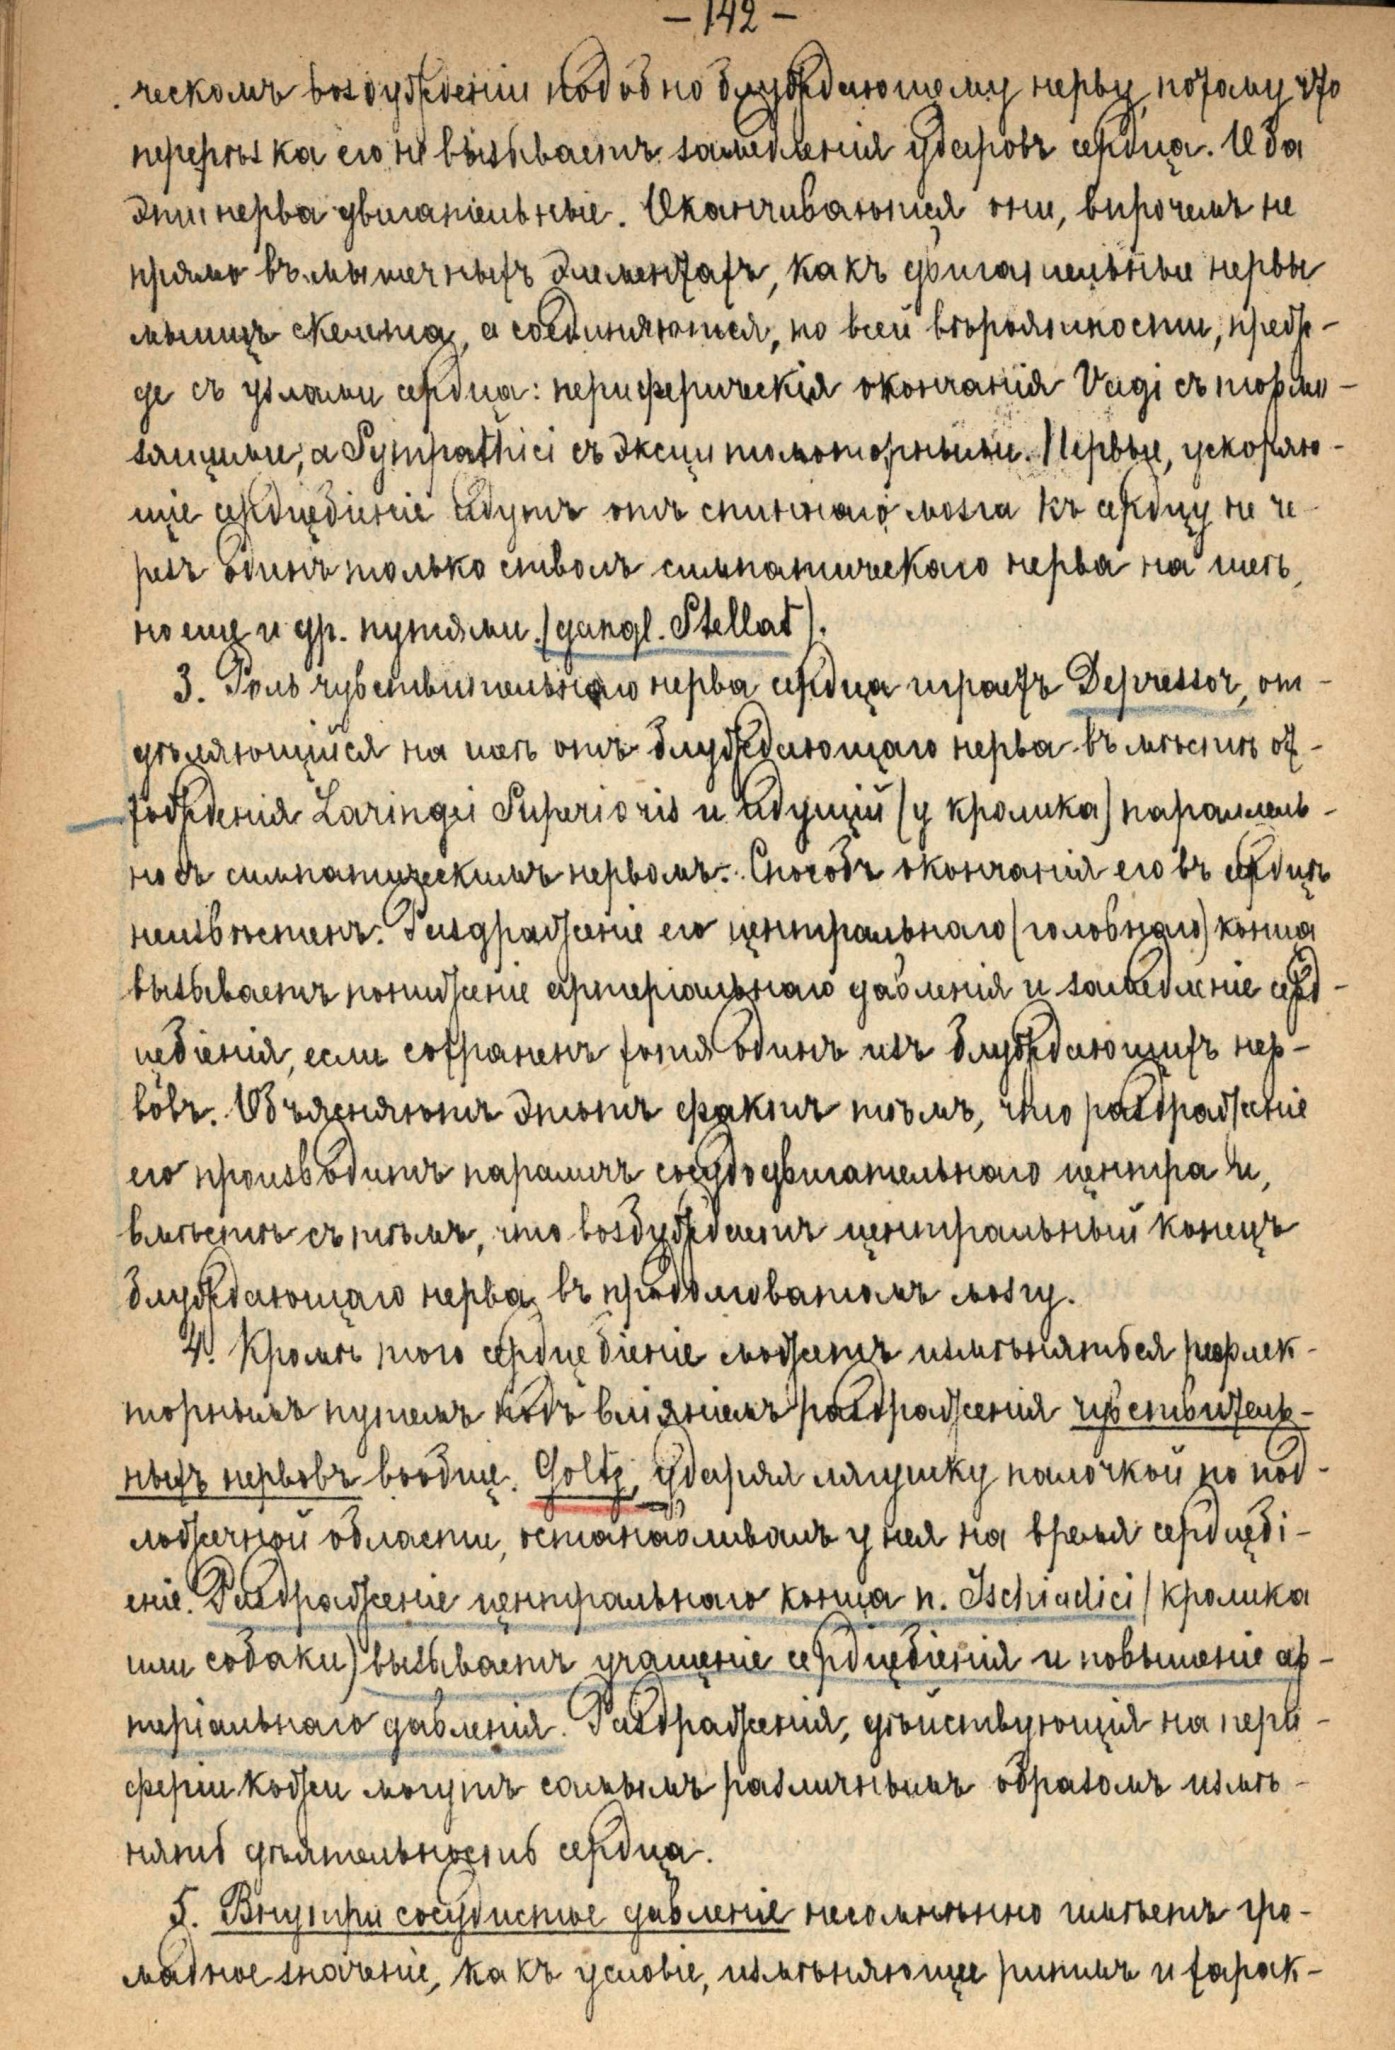 — 142 —
ческомъ возбужденіи подобно блуждающему нерву, потому что
перерѣзка его не вызываетъ замедленія ударовъ сердца. Оба
эти нерва двигательные. Оканчиваются они, впрочемъ не
прямо въ мышечныхъ элементахъ, какъ двигательные нервы
мышцъ скелета, а соединяются, по всей вѣроятности, преж-
де съ узлами сердца: периферическія окончанія Vagi съ тормо-
зящими, а Sympathici съ эксцитомоторными. Нервы, ускоряю-
щіе сердцебіеніе идутъ отъ спинного мозга къ сердцу не че-
резъ одинъ только стволъ симпатическаго нерва на шеѣ,
но еще и др. путями. (gangl. Stellat).
3. Роль чувствительнаго нерва сердца играетъ Depressor, от-
дѣляющійся на шеѣ отъ блуждающаго нерва въ мѣстѣ от-
хожденія Laringei Superioris и идущій (у кролика) параллель-
но съ симпатическимъ нервомъ. Способъ окончанія его въ сердцѣ
неизвѣстенъ. Раздраженіе его центральнаго (головнаго) конца
вызываетъ пониженіе артеріальнаго давленія и замедленіе серд-
цебіенія, если сохраненъ хотя одинъ изъ блуждающихъ нер-
вовъ. Объясняютъ этотъ фактъ тѣмъ, что раздраженіе
его производитъ параличъ сосудодвигательнаго центра и,
вмѣстѣ съ тѣмъ, что возбуждаетъ центральный конецъ
блуждающаго нерва въ продолговатомъ мозгу.
4. Кромѣ того сердцебіеніе можетъ измѣняться рефлек-
торнымъ путемъ подъ вліяніемъ раздраженія чувствитель-
ныхъ нервовъ вообще. Goltz, ударяя лягушку палочкой по под-
ложечной области, останавливалъ у нея на время сердцебі-
еніе. Раздраженіе центральнаго конца n. Ischiadici (кролика
или собаки) вызываетъ учащеніе сердцебіенія и повышеніе ар-
теріальнаго давленія. Раздраженія, дѣйствующія на пери-
феріи кожи могутъ самымъ различнымъ образомъ измѣ-
нять дѣятельность сердца.
5. Внутри сосудистое давленіе несомнѣнно имѣетъ гро-
мадное значеніе, какъ условіе, измѣняющее ритмъ и харак-